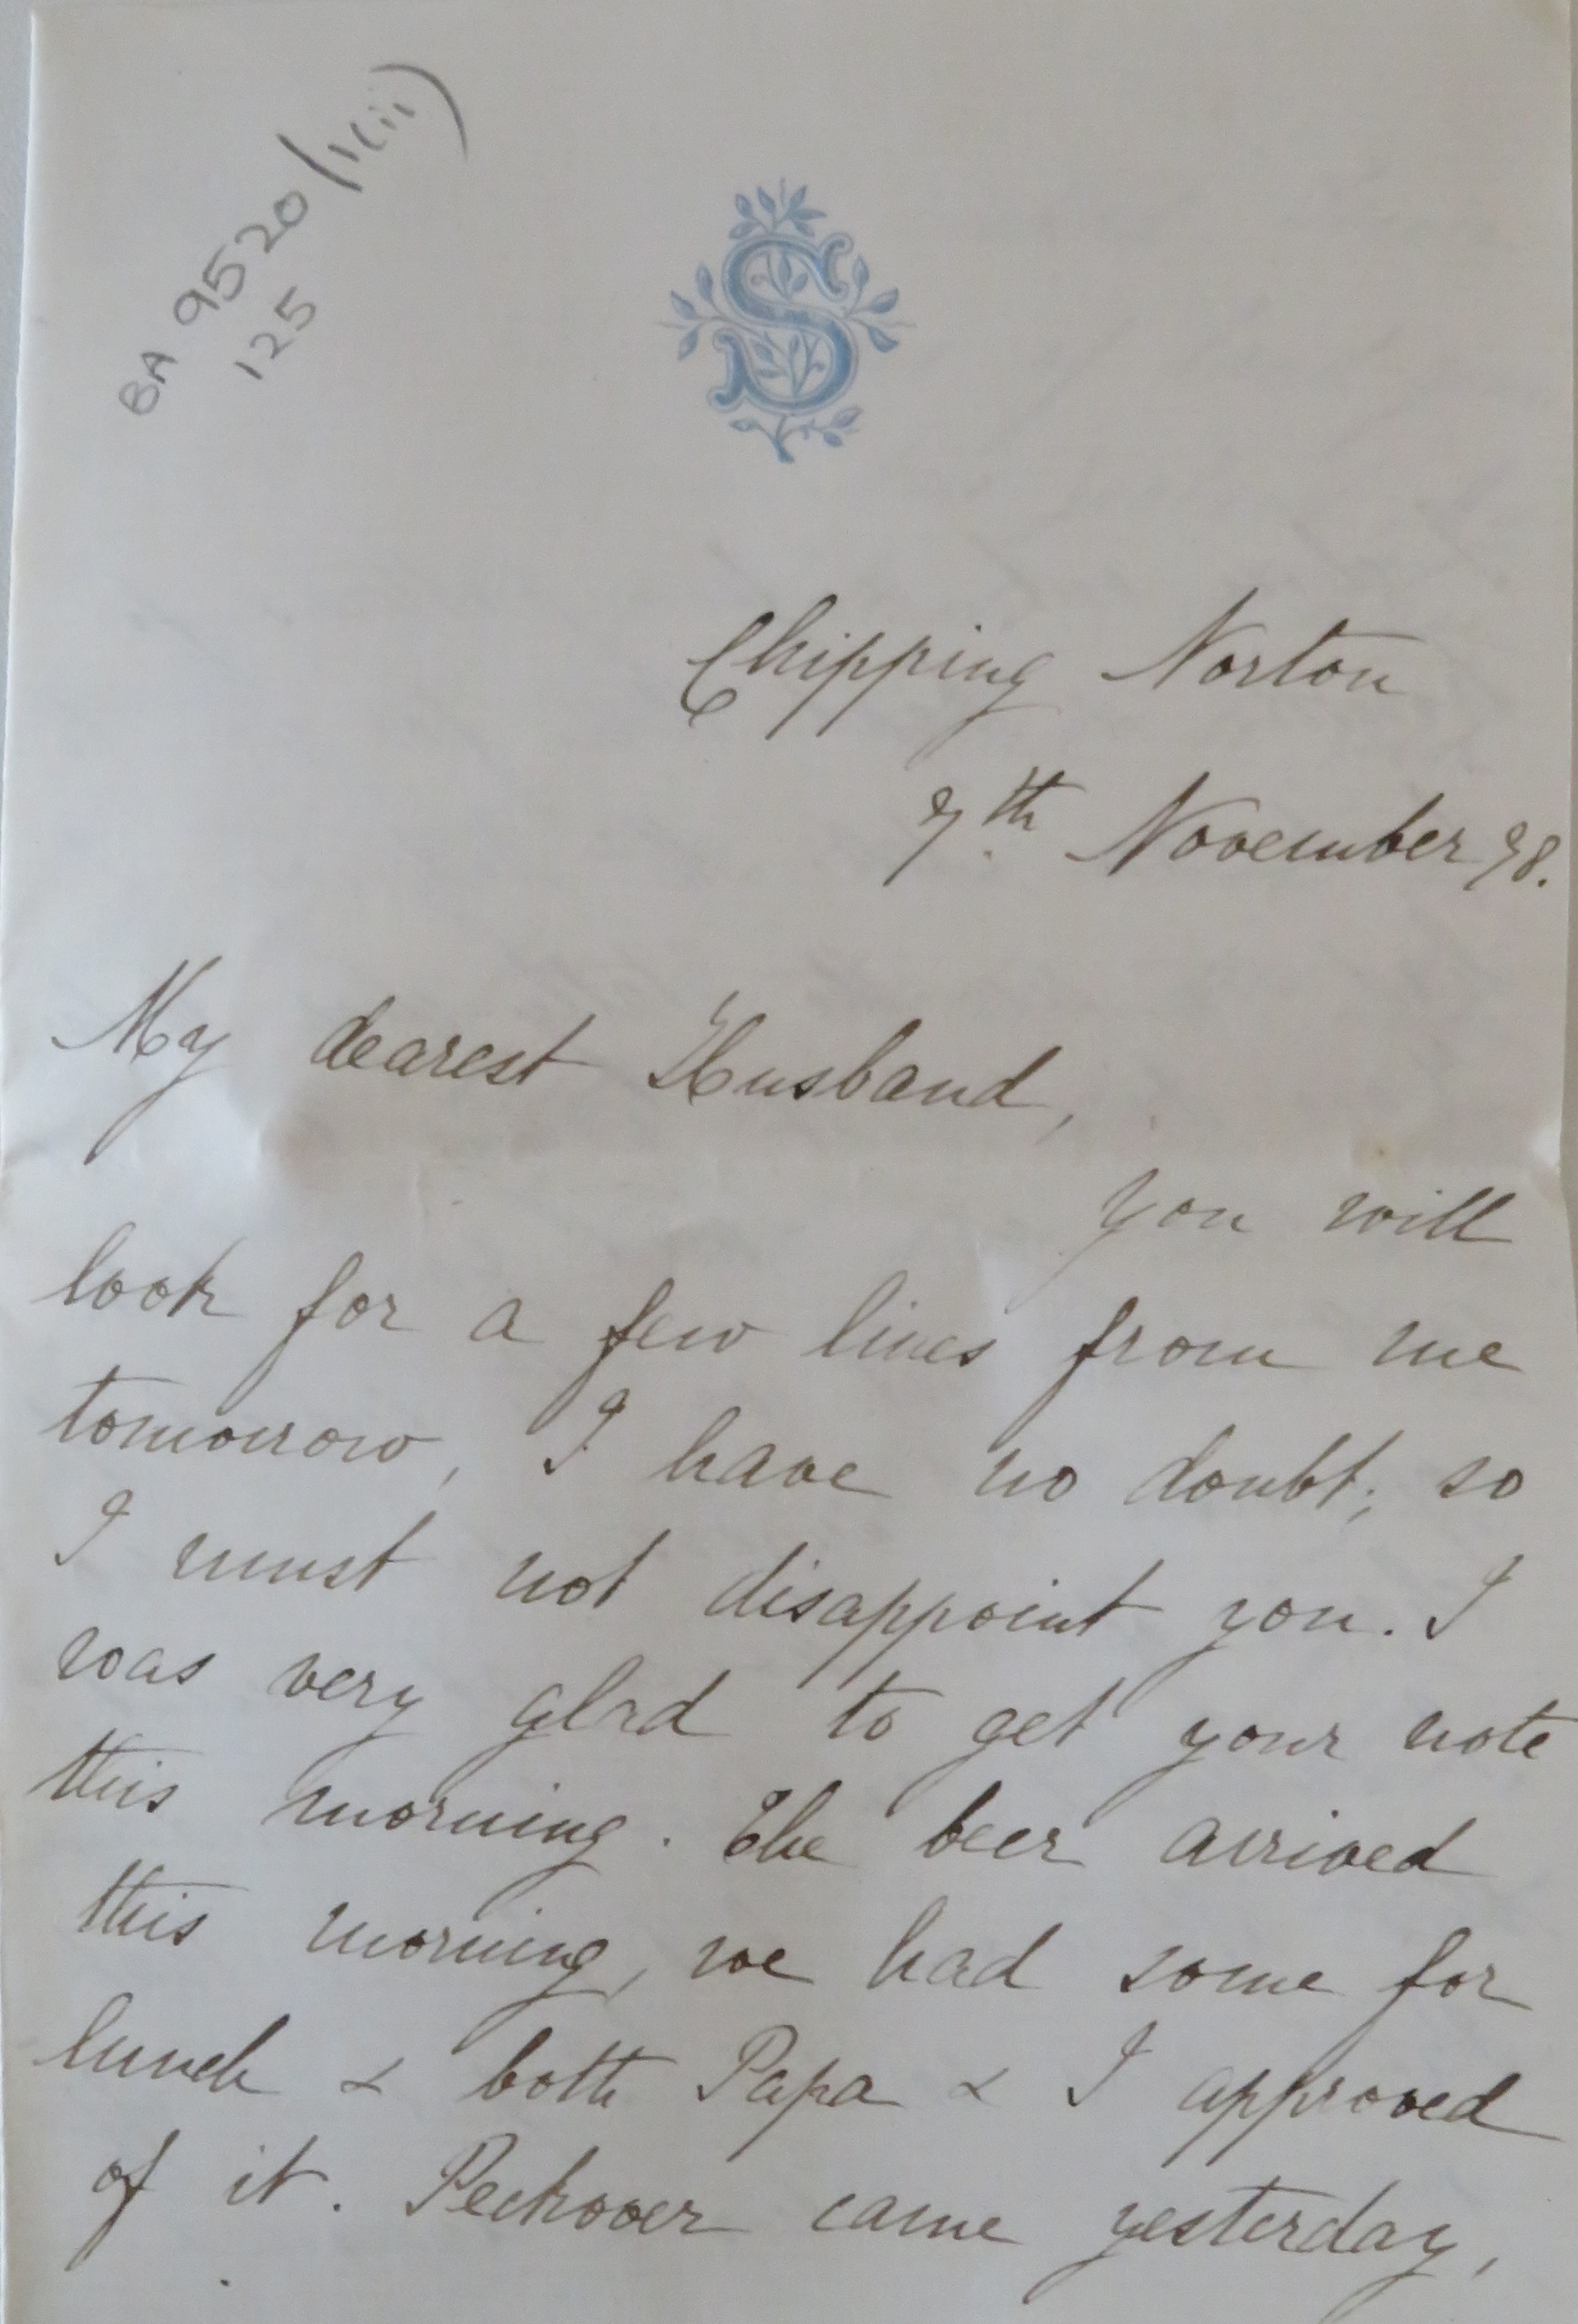 BA 9520/1(ii)
125
S
Chipping Norton
7th November 78.
My dearest Husband,
you will
look for a few lines from me
tomorrow, I have no doubt; so
I must not disappoint you. I
was very glad to get your note
this morning. The beer arrived
this morning, we had some for
lunch & both Papa & I approved
of it. Peckover came yesterday,